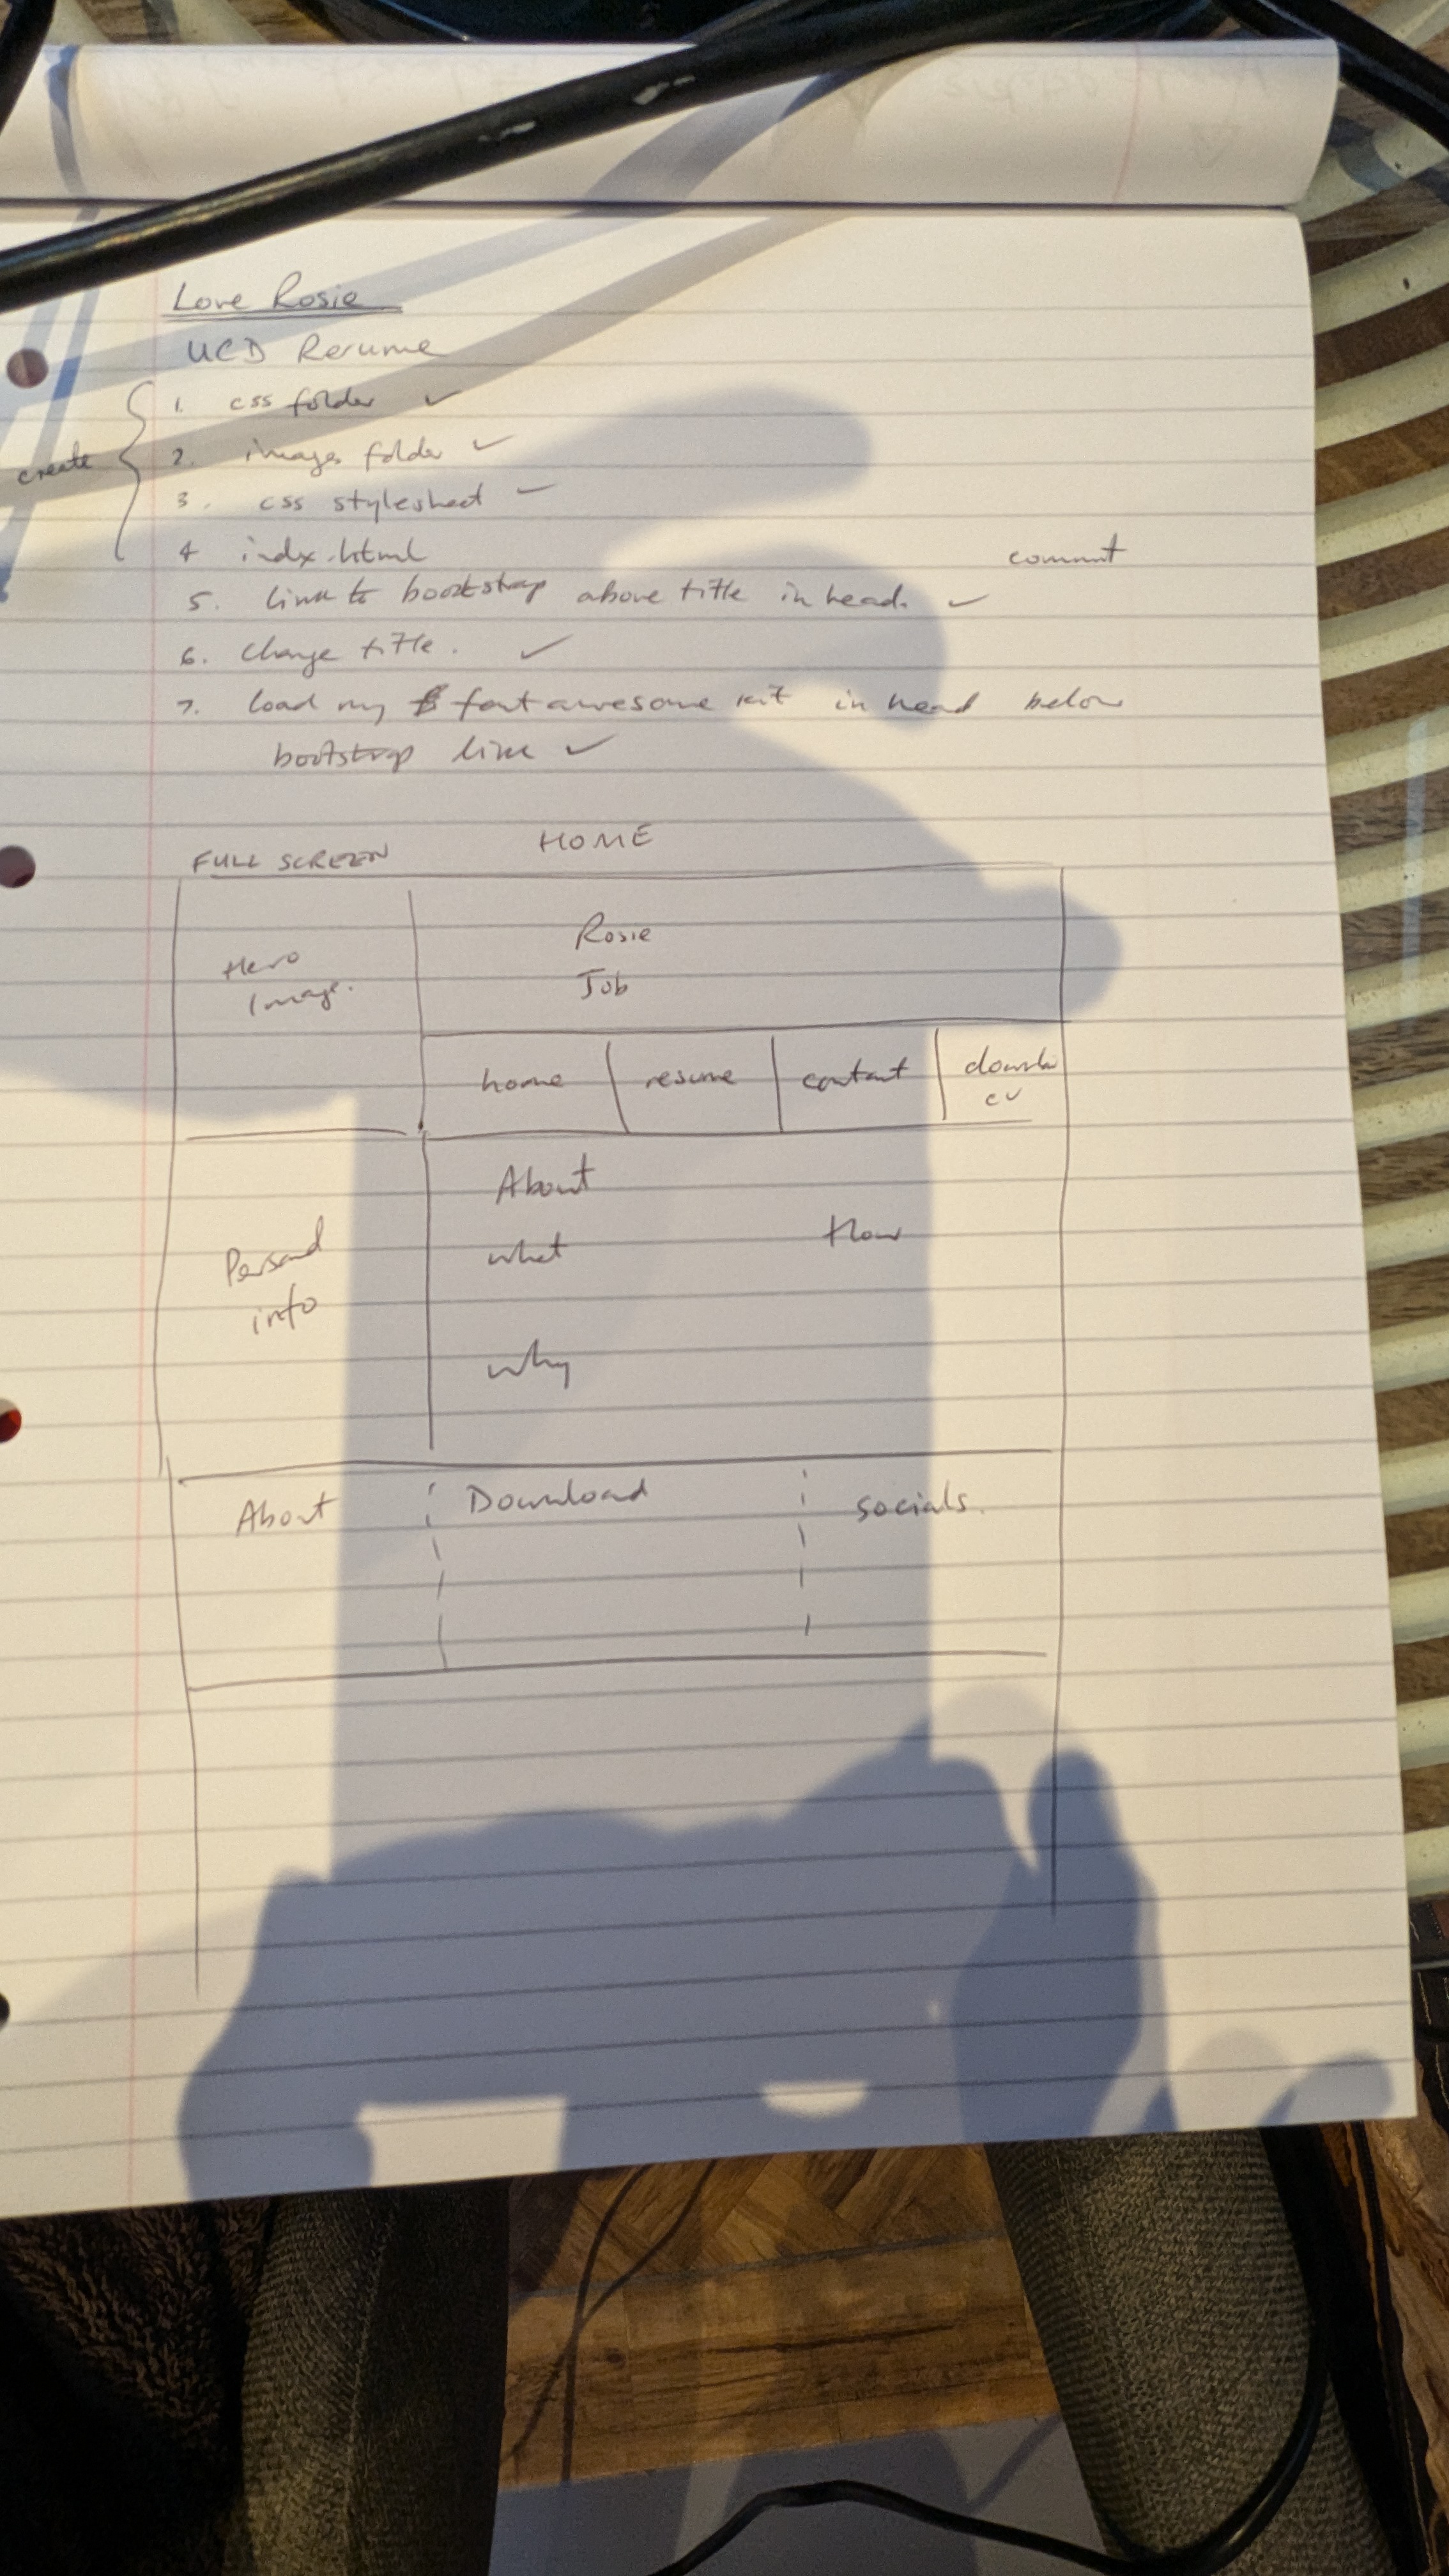 Love Rosie
UCD Resume
create
1. css folder ✓
2. images folder ✓
3. css stylesheet ✓
4 indx.html
commit
5. link to bootstrap above title in head. ✓
6. Change title. ✓
7. load my font awesome kit in head below
bootstrap link ✓
HOME
FULL SCREEN
Hero
Image.
Rosie
Job
home
resume
contact
cv
Personal
info
About
what
How
why
About
Download
socials.